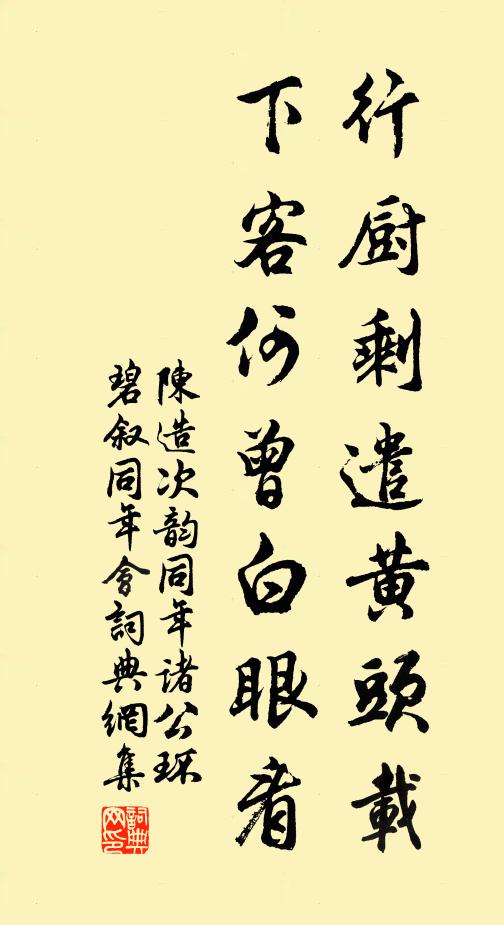 行厨剩遣黄頭載
下客何曾白眼看
陳造次韵同年諸公環
碧叙同年會詞典網集
詞典
网印